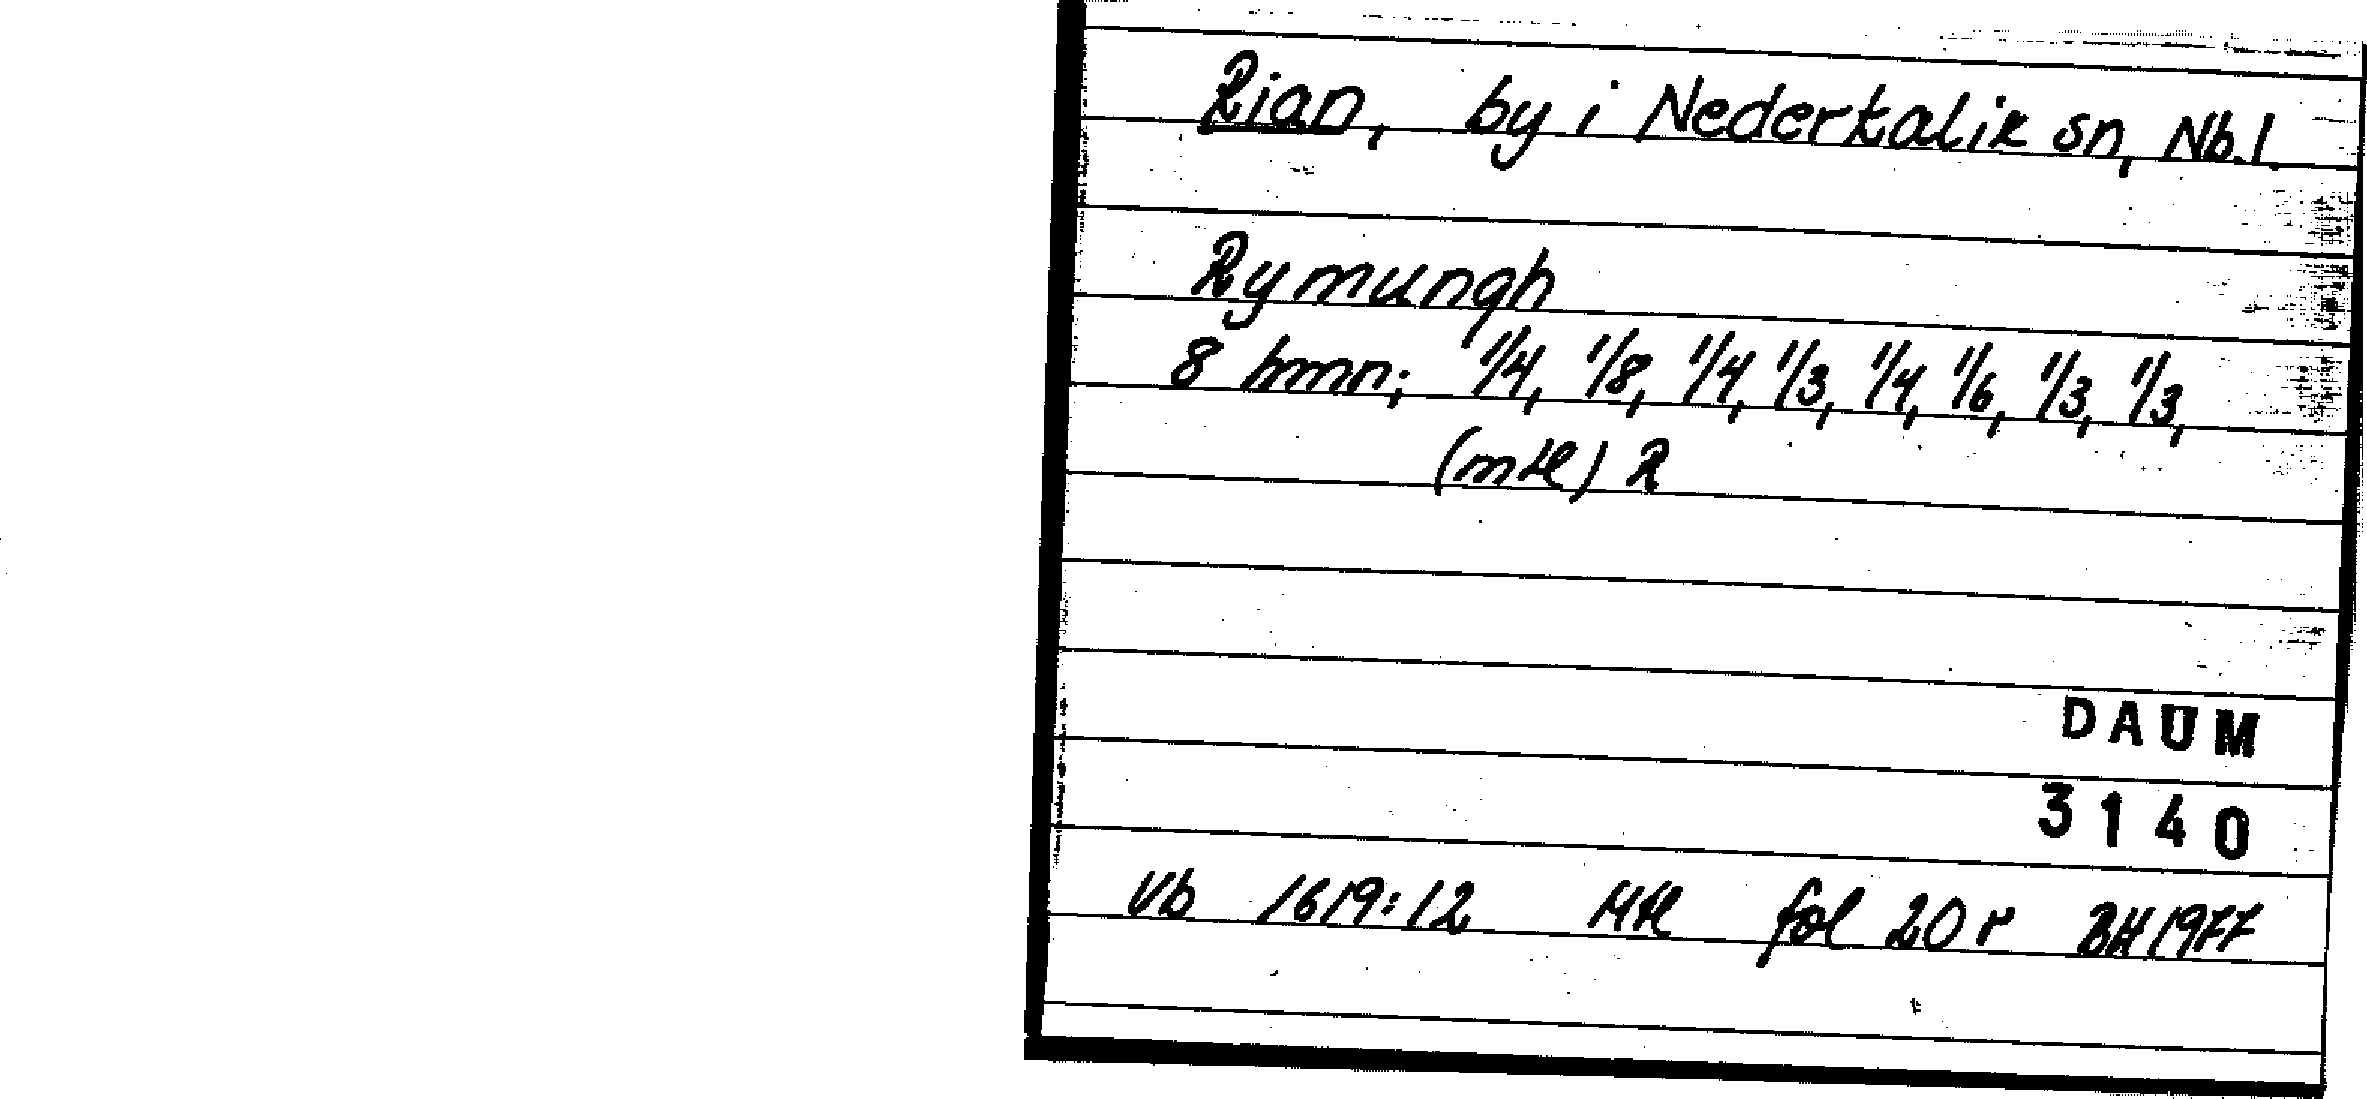 Rian, by i Nederkalix sn, Nb.l.
Rymungh
8 hmn; 1/4, 1/8, 1/4, 1/3, 1/4, 1/6, 1/3, 1/3,
(mtl) R
DAUM
3140
Vb 1619:12 Mtl fol 20 r BH 1977